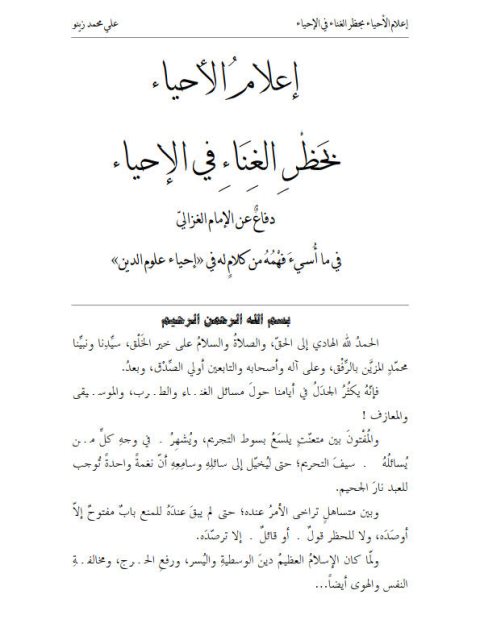 إعلام الأحياء بحظر الغناء في الإحياء
علي محمد زينو
إعلامُ الأحياء
بحَظْرِ الغِنَاءِ في الإحياء
دفاعٌ عن الإمام الغزاليّ
في ما أُسيءَ فهْمُهُ من كلامٍ له في «إحياء علوم الدين»
بسم الله الرحمن الرحيم
الحمدُ لله الهادي إلى الحقّ، والصلاةُ والسلامُ على خير الخَلْق، سيِّدِنا ونبيِّنا
محمّدٍ المزيَّن بالرِّفْق، وعلى آله وأصحابه والتابعين أولي الصِّدْق، وبعدُ.
فإنّهُ يكثُرُ الجدَلُ في أيامنا حولَ مسائل الغنـاء والطـرب، والموسـيقى
والمعازف !
والمُفْتونَ بين متعنّتٍ يلسَعُ بسوط التجريم، ويُشهِرُ . في وجهِ كلِّ مـن
يُسائلُهُ . سيفَ التحريم؛ حتى ليُخيّل إلى سائلِهِ وسامِعِهِ أنّ نغمةً واحدةً تُوجب
للعبد نارَ الجحيم.
وبين متساهلٍ تراخى الأمرُ عنده؛ حتى لم يبقَ عندَهُ للمنع بابٌ مفتوحٌ إلاّ
أوصَدَه، ولا للحظر قولٌ . أو قائلٌ . إلا ترصّدَه.
ولمّا كان الإسلامُ العظيمُ دينَ الوسطيةِ واليُسر، ورفعِ الحـرج، ومخالفـةِ
النفس والهوى أيضاً...